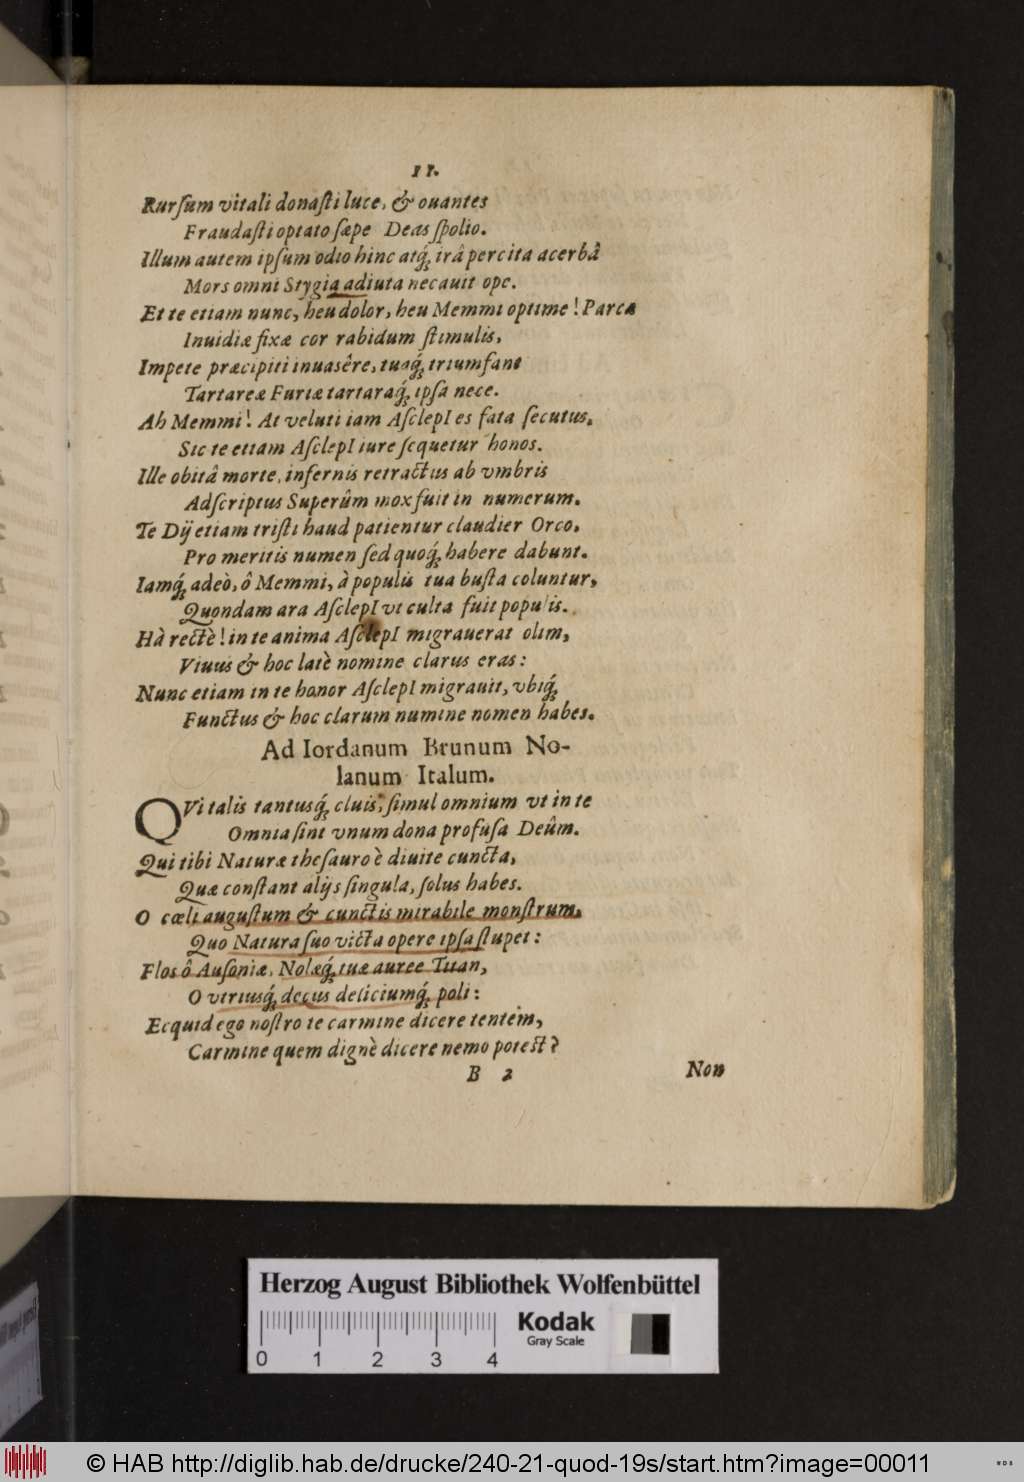 11.
Rurſum vitali donaſti luce, & ouantes
Fraudaſti optato ſæpe Deas ſpolio.
Illum autem ipſum odio hinc atq́; irâ percita acerbâ
Mors omni Stygia adiuta necauit ope.
Et te etiam nunc, heu dolor, heu Memmi optime! Parcæ
Inuidiæ fixæ cor rabidum ſtimulis,
Impete præcipiti inuasêre, tuaq́; triumfant
Tartareæ Furiæ tartaraq́; ipſa nece.
Ah Memmi! At veluti iam AſclepI es fata ſecutus,
Sic te etiam AſclepI iure ſequetur honos.
Ille obitâ morte, infernis retractus ab vmbris
Adſcriptus Superûm mox fuit in numerum.
Te Dij etiam triſti haud patientur claudier Orco,
Pro meritis numen ſed quoq́; habere dabunt.
Iamq́; adeò, ô Memmi, à populis tua buſta coluntur,
Quondam ara AſclepI vt culta fuit populis.
Hà rectè! in te anima AſclepI migrauerat olim,
Viuus & hoc latè nomine clarus eras:
Nunc etiam in te honor AſclepI migrauit, vbiq́;
Functus & hoc clarum numine nomen habes.
Ad Iordanum Brunum No-
lanum Italum.
QVi talis tantusq́; cluis, ſimul omnium vt in te
Omnia ſint vnum dona profuſa Deûm.
Qui tibi Naturæ theſauro è diuite cuncta,
Quæ conſtant alijs ſingula, ſolus habes.
O cœli auguſtum & cunctis mirabile monſtrum,
Quo Natura ſuo victa opere ipſa ſtupet:
Flos ô Auſoniæ, Nolæq́; tuæ auree Titan,
O vtriusq́; decus deliciumq́; poli:
Ecquid ego noſtro te carmine dicere tentem,
Carmine quem dignè dicere nemo poteſt?
B 2 Non
Herzog August Bibliothek Wolfenbüttel
Kodak
Gray Scale
0 1 2 3 4
© HAB http://diglib.hab.de/drucke/240-21-quod-19s/start.htm?image=00011